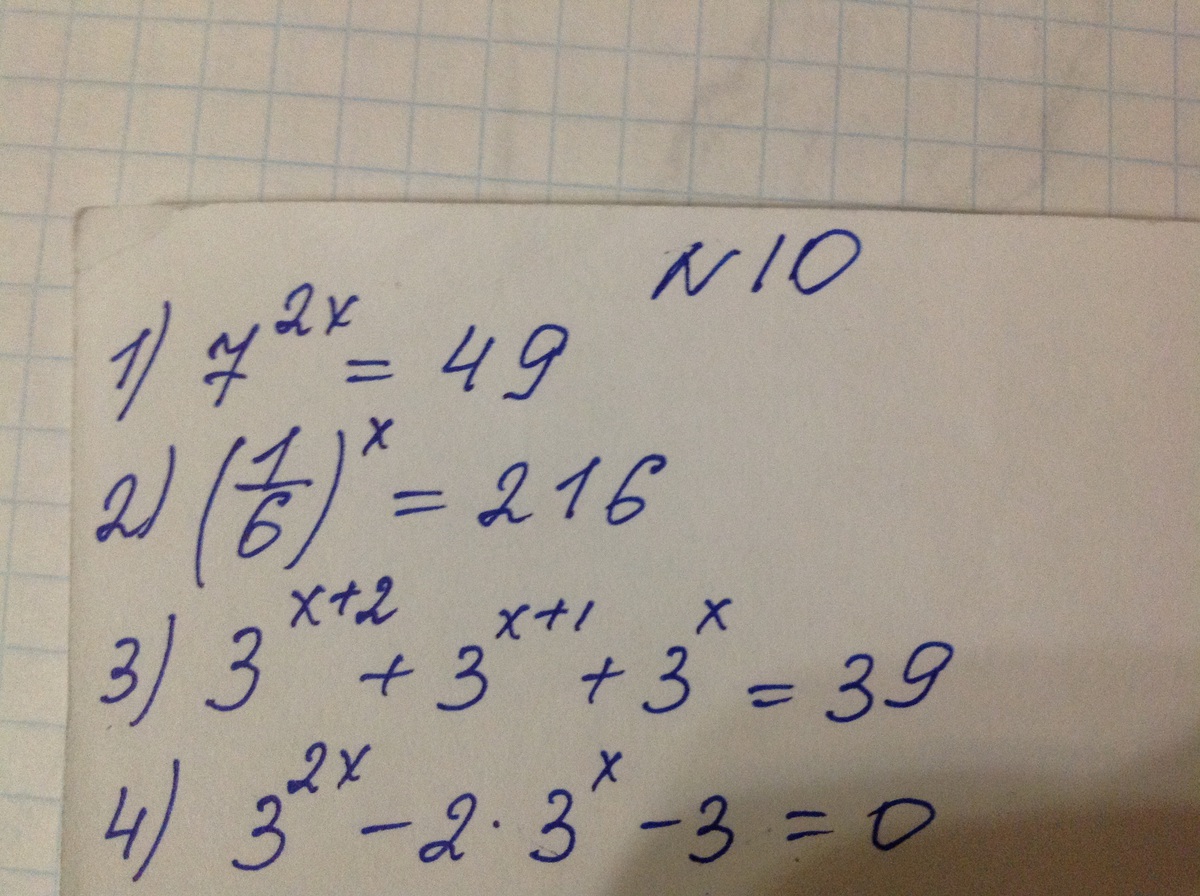 N 10
1) 7^{2x} = 49
2) (1/6)^x = 216
3) 3^{x+2} + 3^{x+1} + 3^x = 39
4) 3^{2x} - 2 · 3^x - 3 = 0